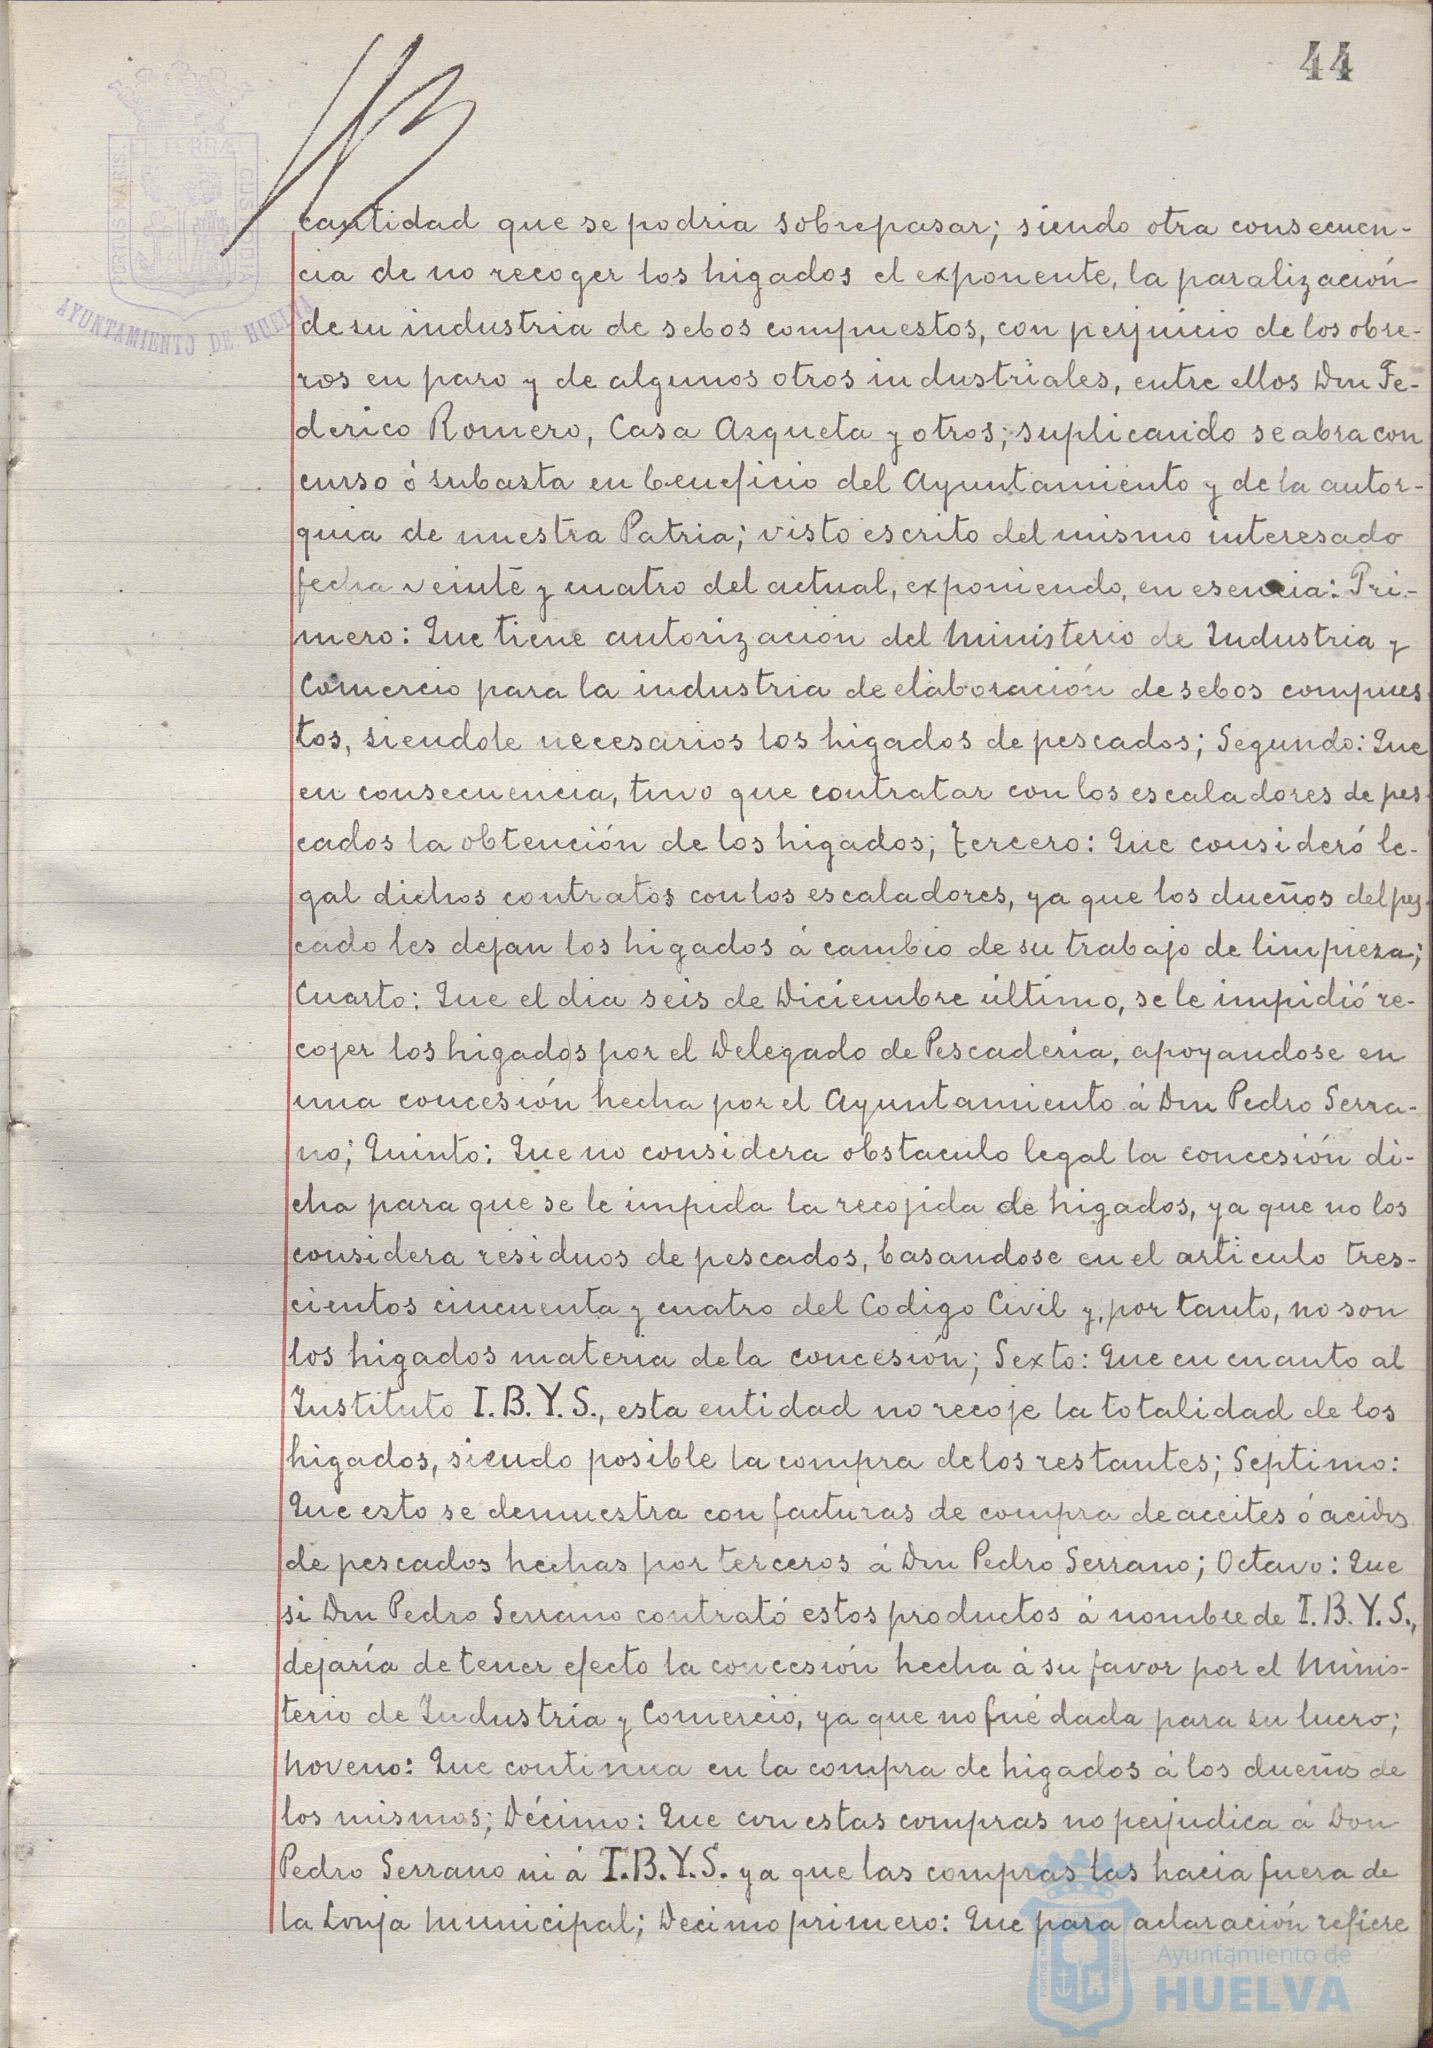 44
PORTUS MARIS ET TERRÆ CUSTODIA
AYUNTAMIENTO DE HUELVA
cantidad que se podria sobrepasar; siendo otra consecuen-
cia de no recoger los higados el exponente, la paralización
de su industria de sebos compuestos, con perjuicio de los obre-
ros en paro y de algunos otros industriales, entre ellos Don Fe-
derico Romero, Casa Azqueta y otros; suplicando se abra con
curso ó subasta en beneficio del Ayuntamiento y de la autor-
quia de nuestra Patria; visto escrito del mismo interesado
fecha veinte y cuatro del actual, exponiendo, en esencia: Pri-
mero: Que tiene autorización del Ministerio de Industria y
Comercio para la industria de elaboración de sebos compues-
tos, siendole necesarios los higados de pescados; Segundo: Que
en consecuencia, tuvo que contratar con los escaladores de pes-
cados la obtención de los higados; tercero: Que consideró le-
gal dichos contratos con los escaladores, ya que los dueños del pes-
cado les dejan los higados á cambio de su trabajo de limpieza;
Cuarto: Que el dia seis de Diciembre último, se le impidió re-
cojer los higados por el Delegado de Pescaderia, apoyandose en
una concesión hecha por el Ayuntamiento á Don Pedro Serra-
no; Quinto: Que no considera obstaculo legal la concesión di-
cha para que se le impida la recojida de higados, ya que no los
considera residuos de pescados, basandose en el articulo tres-
cientos cincuenta y cuatro del Codigo Civil y, por tanto, no son
los higados materia de la concesión; Sexto: Que en cuanto al
Instituto I.B.Y.S., esta entidad no recoje la totalidad de los
higados, siendo posible la compra de los restantes; Septimo:
Que esto se demuestra con facturas de compra de aceites ó acidos
de pescados hechas por terceros á Don Pedro Serrano; Octavo: Que
si Don Pedro Serrano contrató estos productos á nombre de I.B.Y.S.,
dejaría de tener efecto la concesión hecha á su favor por el Minis-
terio de Industria y Comercio, ya que no fué dada para su lucro;
Noveno: Que continua en la compra de higados á los dueños de
los mismos; Décimo: Que con estas compras no perjudica á Don
Pedro Serrano ni á I.B.Y.S. ya que las compras las hacia fuera de
la Lonja Municipal; Decimo primero: Que para aclaración refiere
Ayuntamiento de
HUELVA